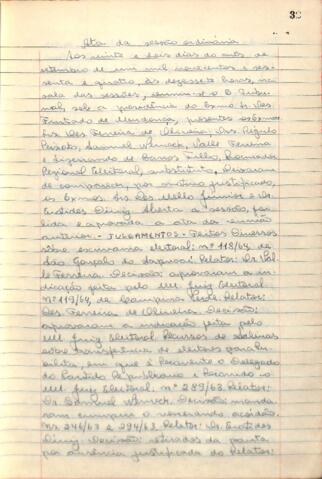 32
Ata da sessão ordinária
Aos vinte e dois dias do mês de
setembro de um mil novecentos e ses-
senta e quatro, às dezessete horas, na
sala das sessões, reuniu-se o E. Tribu-
nal, sob a presidência do Exmo Sr. Des.
Furtado de Mendonça, presentes os Exmos
Srs. Des. Ferreira de Oliveira, Drs. Régulo
Peixoto, Samuel Werneck, Valle Ferreira
e Sizenando de Barros Filho, Procurador
Regional Eleitoral, substituto. Deixaram
de comparecer, por motivo justificado,
os Exmos. Srs. Des. Mello Júnior e Dr.
Eurípides Diniz. Aberta a sessão, foi
lida e aprovada a ata da reunião
anterior. - JULGAMENTOS - Feitos Diversos
sôbre escrivania eleitoral: nº 118/64, de
São Gonçalo do Sapucaí. Relator: Dr. Val-
le Ferreira. Decisão: aprovaram a in-
dicação feita pelo MM Juiz Eleitoral.
nº 119/64, de Campina Verde. Relator:
Des. Ferreira de Oliveira. Decisão:
aprovaram a indicação feita pelo
MM Juiz Eleitoral. Recursos de Salinas
sôbre transferência de eleitores
em que é Recorrente o Delegado
do Partido Republicano e Recorrido o
MM Juiz Eleitoral: nº 289/63. Relator:
Dr. Samuel Werneck. Decisão: manda-
ram cumprir o venerando acórdão.
Nºs 246/63 e 294/63. Relator: Dr.
Diniz. Decisão: retirados da pauta
por ausência justificada do Relator.